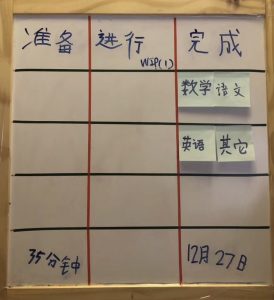 准备 进行 完成
WIP(1)
数学 语文
英语 其它
35分钟 12月27日